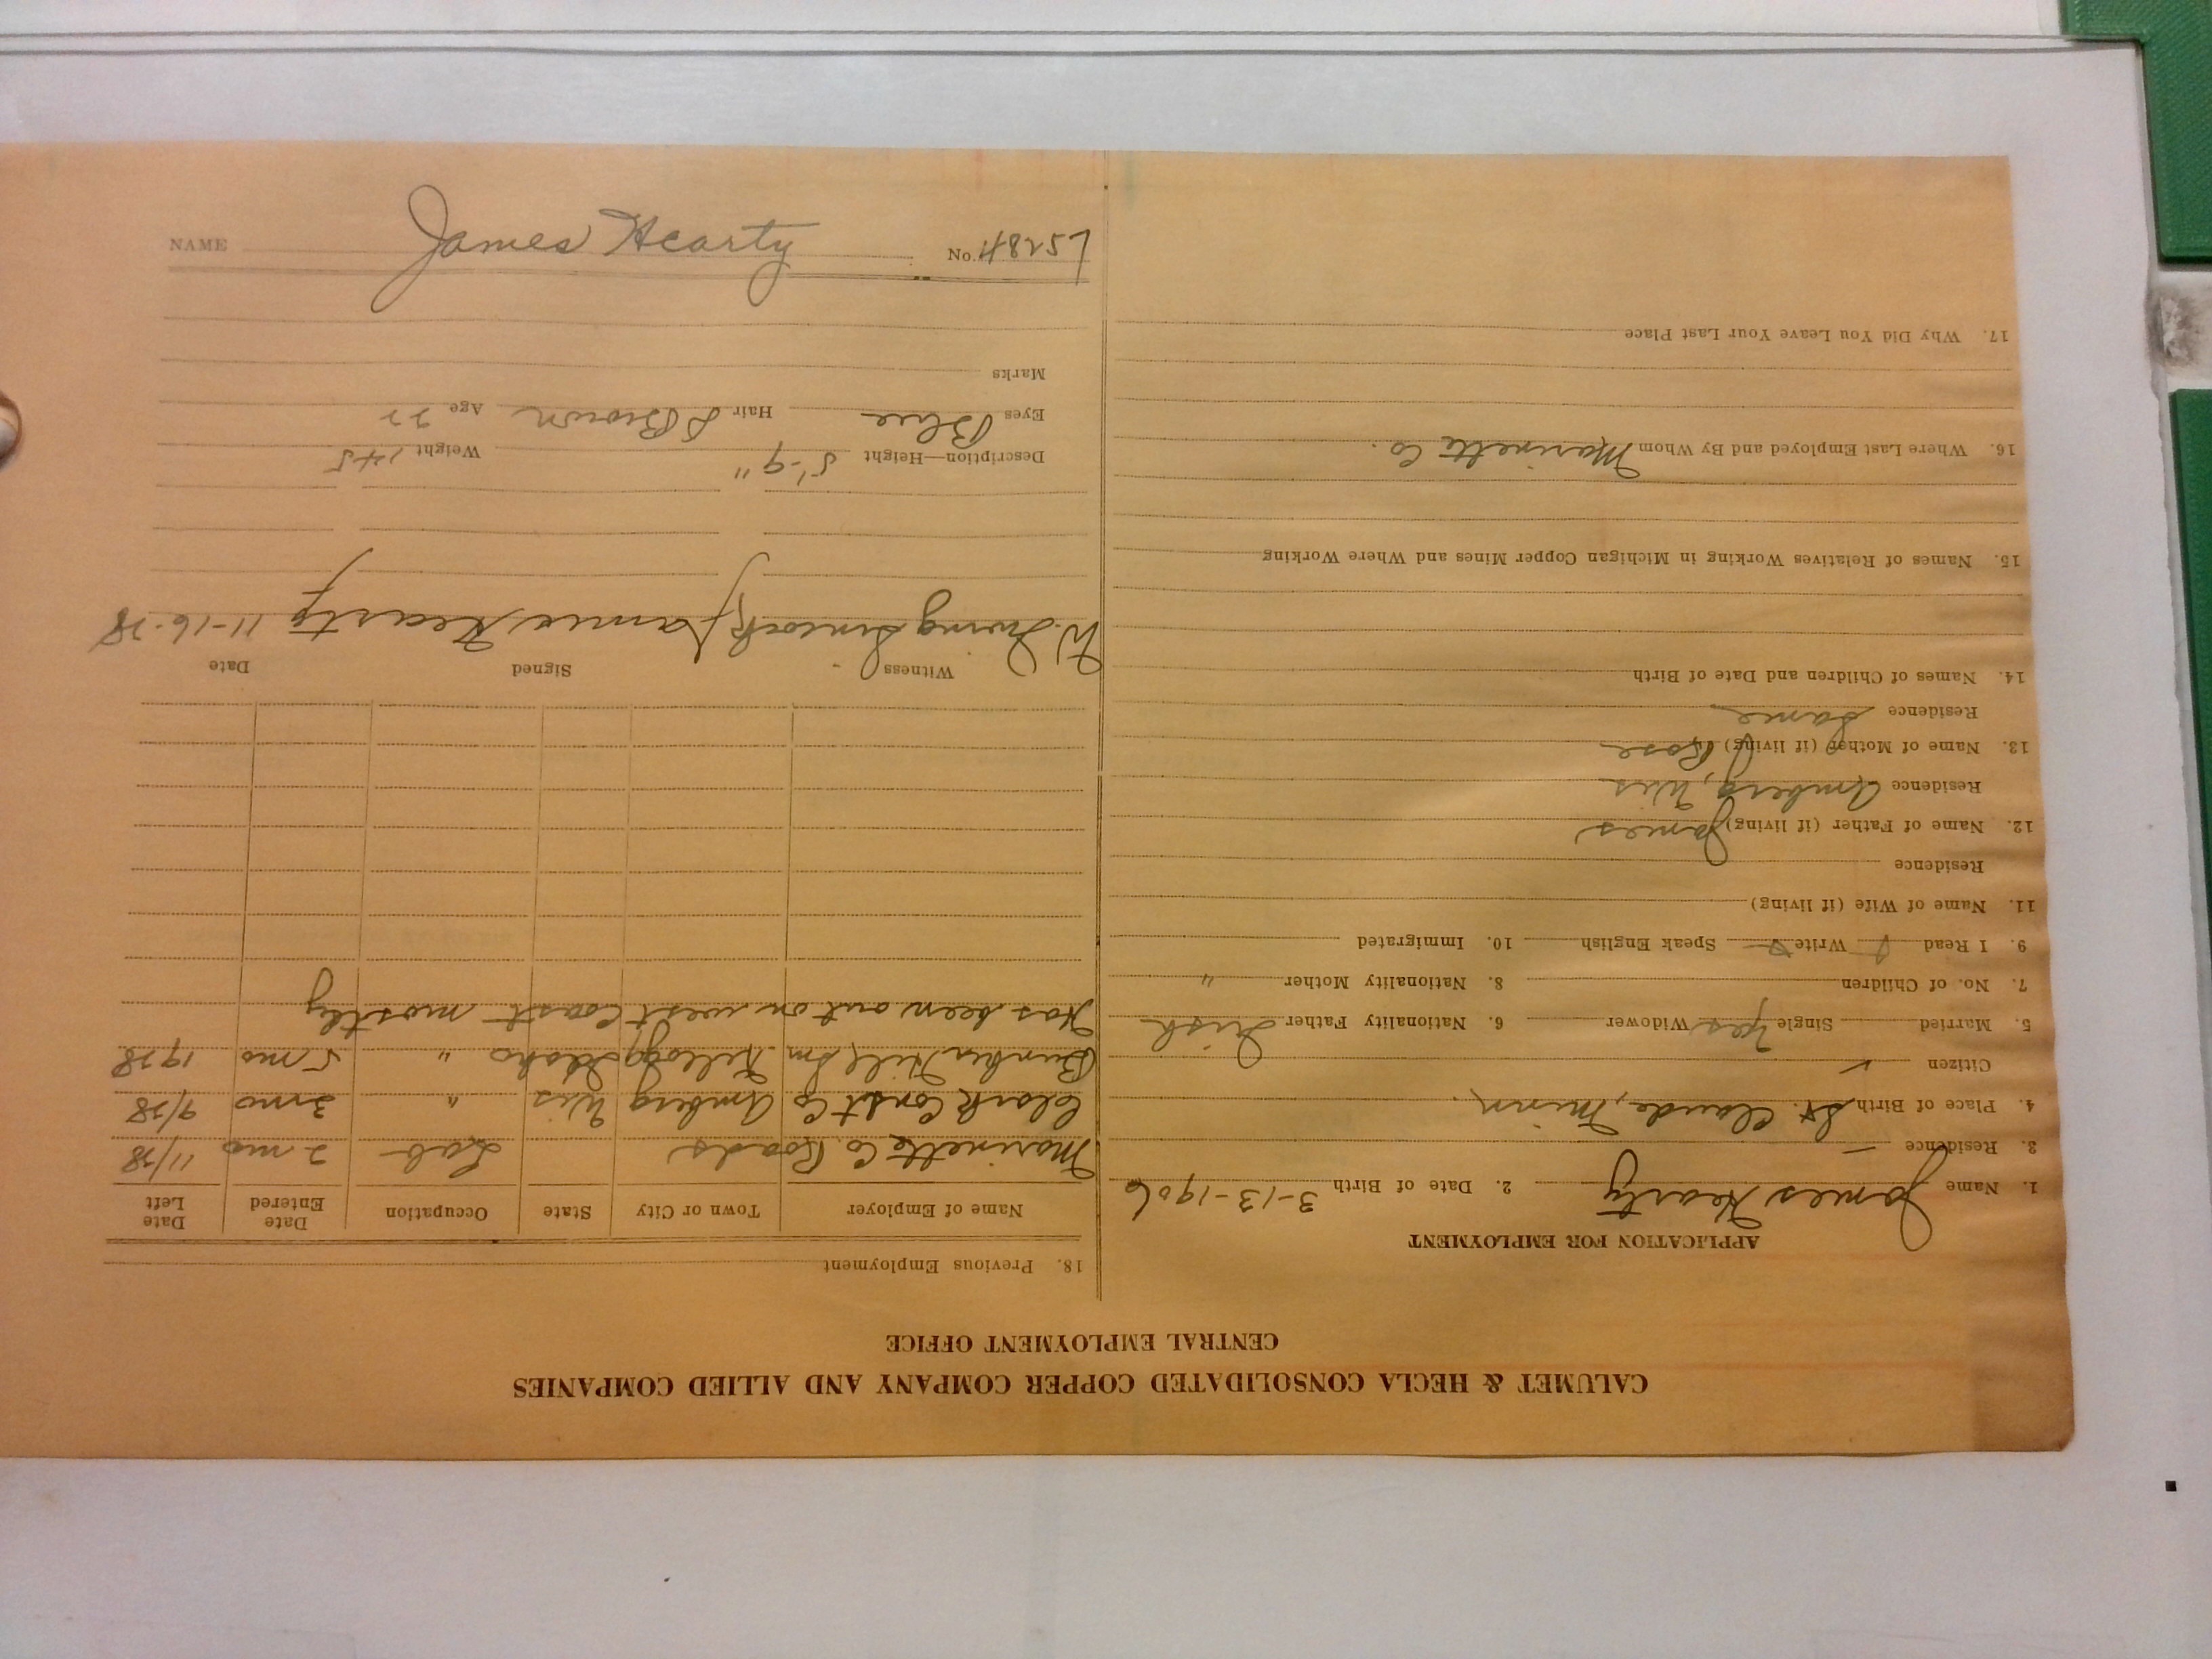 CALUMET & HECLA CONSOLIDATED COPPER COMPANY AND ALLIED COMPANIES
CENTRAL EMPLOYMENT OFFICE
APPLICATION FOR EMPLOYMENT
1. Name James Hearty 2. Date of Birth 3-13-1906
3. Residence —
4. Place of Birth St. Claude, Minn.
Citizen ✓
5. Married Single Yes Widower 6. Nationality Father Irish
7. No. of Children 8. Nationality Mother "
9. I Read ✓ Write ✓ Speak English 10. Immigrated
11. Name of Wife (if living)
Residence
12. Name of Father (if living) James
Residence Amberg, Wis
13. Name of Mother (if living) Rose
Residence Same
14. Names of Children and Date of Birth
15. Names of Relatives Working in Michigan Copper Mines and Where Working
16. Where Last Employed and By Whom Marinette Co.
17. Why Did You Leave Your Last Place
18. Previous Employment
Name of Employer Town or City State Occupation Date Entered Date Left
Marinette Co. Roads Lab 2 mo 11/28
Clark Const Co Amberg Wis " 3 mo 9/28
Bunker Hill Sm Kellogg Idaho " 5 mo 1928
Has been out on west coast mostly
Witness Signed Date
W. Irving Sincock James Hearty 11-16-28
Description—Height 5'-9" Weight 145
Eyes Blue Hair L Brown Age 22
Marks
NAME
James Hearty
No.
L5284